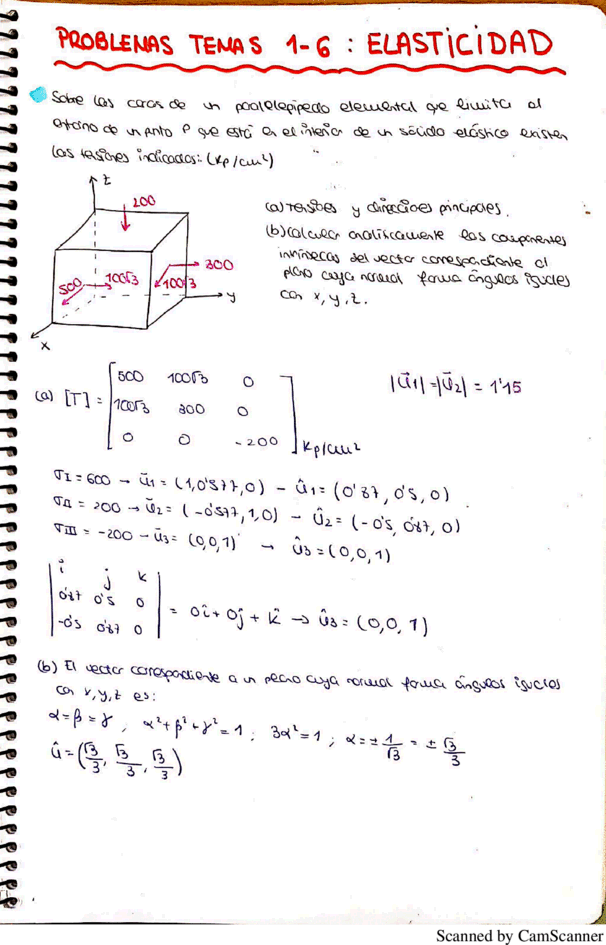 PROBLEMAS TEMAS 1-6: ELASTICIDAD
Sobre las caras de un paralelepipedo elemental que limita al
entorno de un punto P que está en el interior de un sólido elástico existen
las tensiones indicadas: (Kp/cm²)
z
200
300
100√3
100√3
500
y
x
(a) Tensiones y direcciones principales.
(b) Calcular analíticamente las componentes
intrínsecas del vector correspondiente al
plano cuya normal forma ángulos iguales
con x, y, z.
(a) [T] = [500 100√3 0
100√3 300 0
0 0 -200] Kp/cm²
|ū₁|=|ū₂| = 1'15
σI = 600 → ū₁ = (1,0'577,0) - û₁ = (0'87, 0'5, 0)
σII = 200 → ū₂ = (-0'577,1,0) - û₂ = (-0'5, 0'87, 0)
σIII = -200 - ū₃ = (0,0,1) → û₃ = (0,0,1)
|i j k
0'87 0'5 0
-0'5 0'87 0| = 0î + 0ĵ + k̂ → û₃ = (0,0,1)
(b) El vector correspondiente a un plano cuya normal forma ángulos iguales
con x,y,z es:
α=β=γ, α²+β²+γ²=1; 3α²=1; α=±1/√3 = ±√3/3
û = (√3/3, √3/3, √3/3)
Scanned by CamScanner